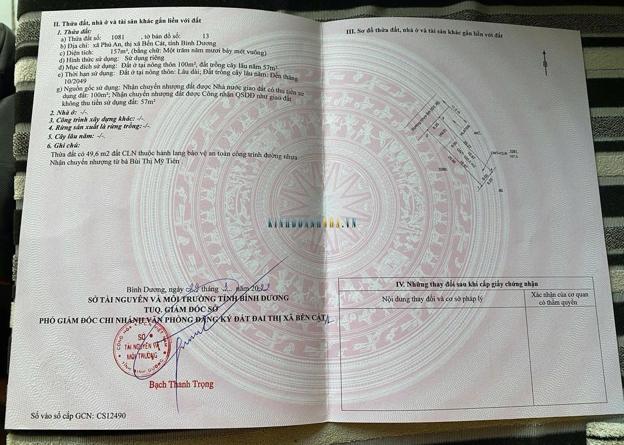 II. Thửa đất, nhà ở và tài sản khác gắn liền với đất
1. Thửa đất:
a) Thửa đất số: 1081 , tờ bản đồ số: 13
b) Địa chỉ: xã Phú An, thị xã Bến Cát, tỉnh Bình Dương
c) Diện tích: 157m², (bằng chữ: Một trăm năm mươi bảy mét vuông)
d) Hình thức sử dụng: Sử dụng riêng
đ) Mục đích sử dụng: Đất ở tại nông thôn 100m², đất trồng cây lâu năm 57m²
e) Thời hạn sử dụng: Đất ở tại nông thôn: Lâu dài; Đất trồng cây lâu năm: Đến tháng
10/2049
g) Nguồn gốc sử dụng: Nhận chuyển nhượng đất được Nhà nước giao đất có thu tiền sử
dụng đất: 100m²; Nhận chuyển nhượng đất được Công nhận QSDĐ như giao đất
không thu tiền sử dụng đất: 57m²
2. Nhà ở: -/-
3. Công trình xây dựng khác: -/-
4. Rừng sản xuất là rừng trồng: -/-
5. Cây lâu năm: -/-
6. Ghi chú:
Thửa đất có 49,6 m2 đất CLN thuộc hành lang bảo vệ an toàn công trình đường nhựa
Nhận chuyển nhượng từ bà Bùi Thị Mỹ Tiên
Bình Dương, ngày tháng năm
SỞ TÀI NGUYÊN VÀ MÔI TRƯỜNG TỈNH BÌNH DƯƠNG
TUQ. GIÁM ĐỐC SỞ
PHÓ GIÁM ĐỐC CHI NHÁNH VĂN PHÒNG ĐĂNG KÝ ĐẤT ĐAI THỊ XÃ BẾN CÁT
SỞ
TÀI NGUYÊN VÀ
MÔI TRƯỜNG
Bạch Thanh Trọng
Số vào sổ cấp GCN: CS12490
III. Sơ đồ thửa đất, nhà ở và tài sản khác gắn liền với đất
KINHDOANHNHA.VN
IV. Những thay đổi sau khi cấp giấy chứng nhận
Nội dung thay đổi và cơ sở pháp lý
Xác nhận của cơ quan
có thẩm quyền